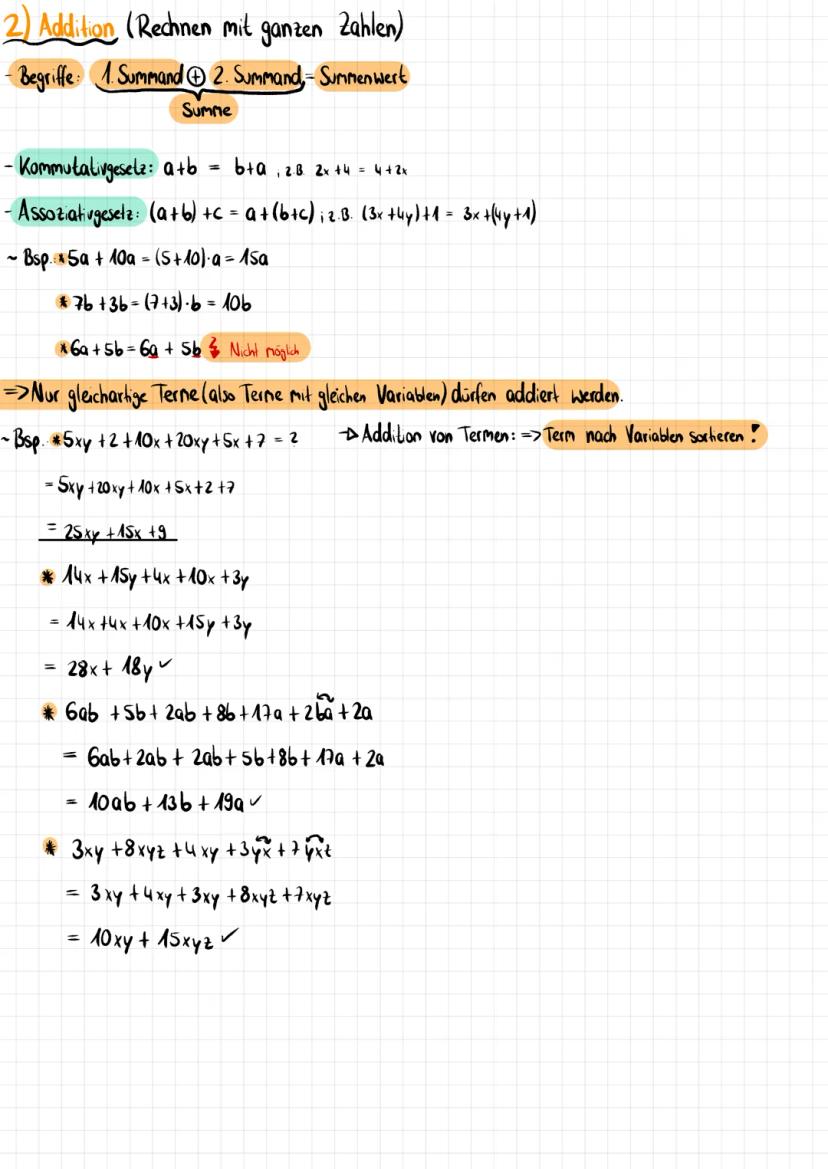 2) Addition (Rechnen mit ganzen Zahlen)
- Begriffe: 1. Summand + 2. Summand = Summenwert
Summe
- Kommutativgesetz: a+b = b+a , z.B. 2x+4 = 4+2x
- Assoziativgesetz: (a+b)+c = a+(b+c) ; z.B. (3x+4y)+1 = 3x+(4y+1)
~ Bsp. * 5a + 10a = (5+10)·a = 15a
* 7b + 3b = (7+3)·b = 10b
* 6a + 5b = 6a + 5b ↯ Nicht möglich
=> Nur gleichartige Terme (also Terme mit gleichen Variablen) dürfen addiert werden.
~ Bsp. * 5xy + 2 + 10x + 20xy + 5x + 7 = ? → Addition von Termen: => Term nach Variablen sortieren !
= 5xy + 20xy + 10x + 5x + 2 + 7
= 25xy + 15x + 9
* 14x + 15y + 4x + 10x + 3y
= 14x + 4x + 10x + 15y + 3y
= 28x + 18y ✓
* 6ab + 5b + 2ab + 8b + 17a + 2ba + 2a
= 6ab + 2ab + 2ab + 5b + 8b + 17a + 2a
= 10ab + 13b + 19a ✓
* 3xy + 8xyz + 4xy + 3yx + 7yxz
= 3xy + 4xy + 3xy + 8xyz + 7xyz
= 10xy + 15xyz ✓